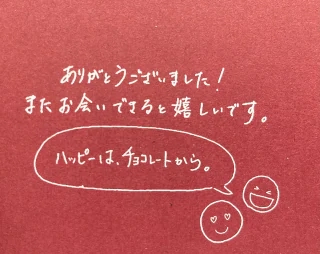 ありがとうございました！
またお会いできると嬉しいです。
ハッピーは、チョコレートから。